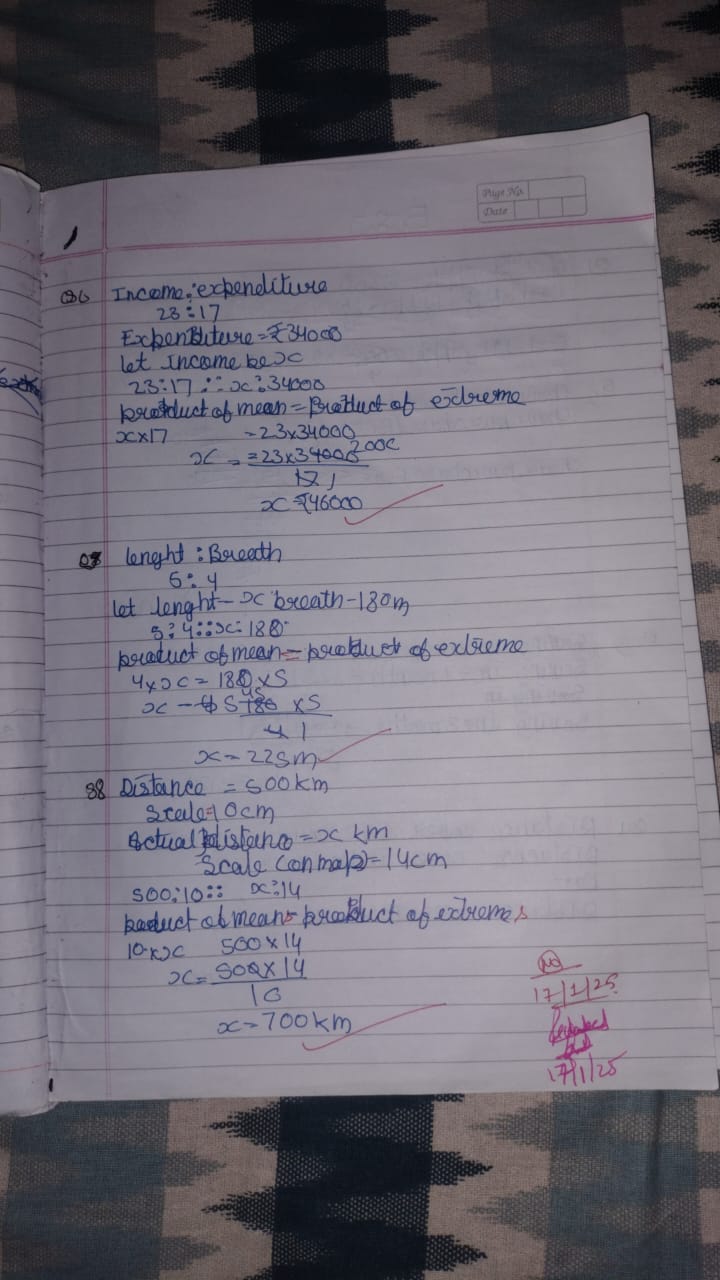 Page No.
Date
Q6 Income : expenditure
23 : 17
Expenditure = ₹34000
let Income be x
23:17 :: x:34000
product of mean = Product of extreme
x×17 = 23×34000
x = = 23×34000 2000
17 1
x = ₹46000
Q7 lenght : Breath
5 : 4
let lenght - x breath - 180m
5:4::x:180
product of mean = product of extreme
4×x = 180×5
x - 180 45 ×5
4 1
x = 225m
Q8 Distance = 500km
Scale = 10cm
Actual distance = x km
Scale (on map) = 14cm
500:10:: x:14
product of means product of extremes
10×x 500×14
x = 500×14
10
x = 700km
17/1/25
17/1/25